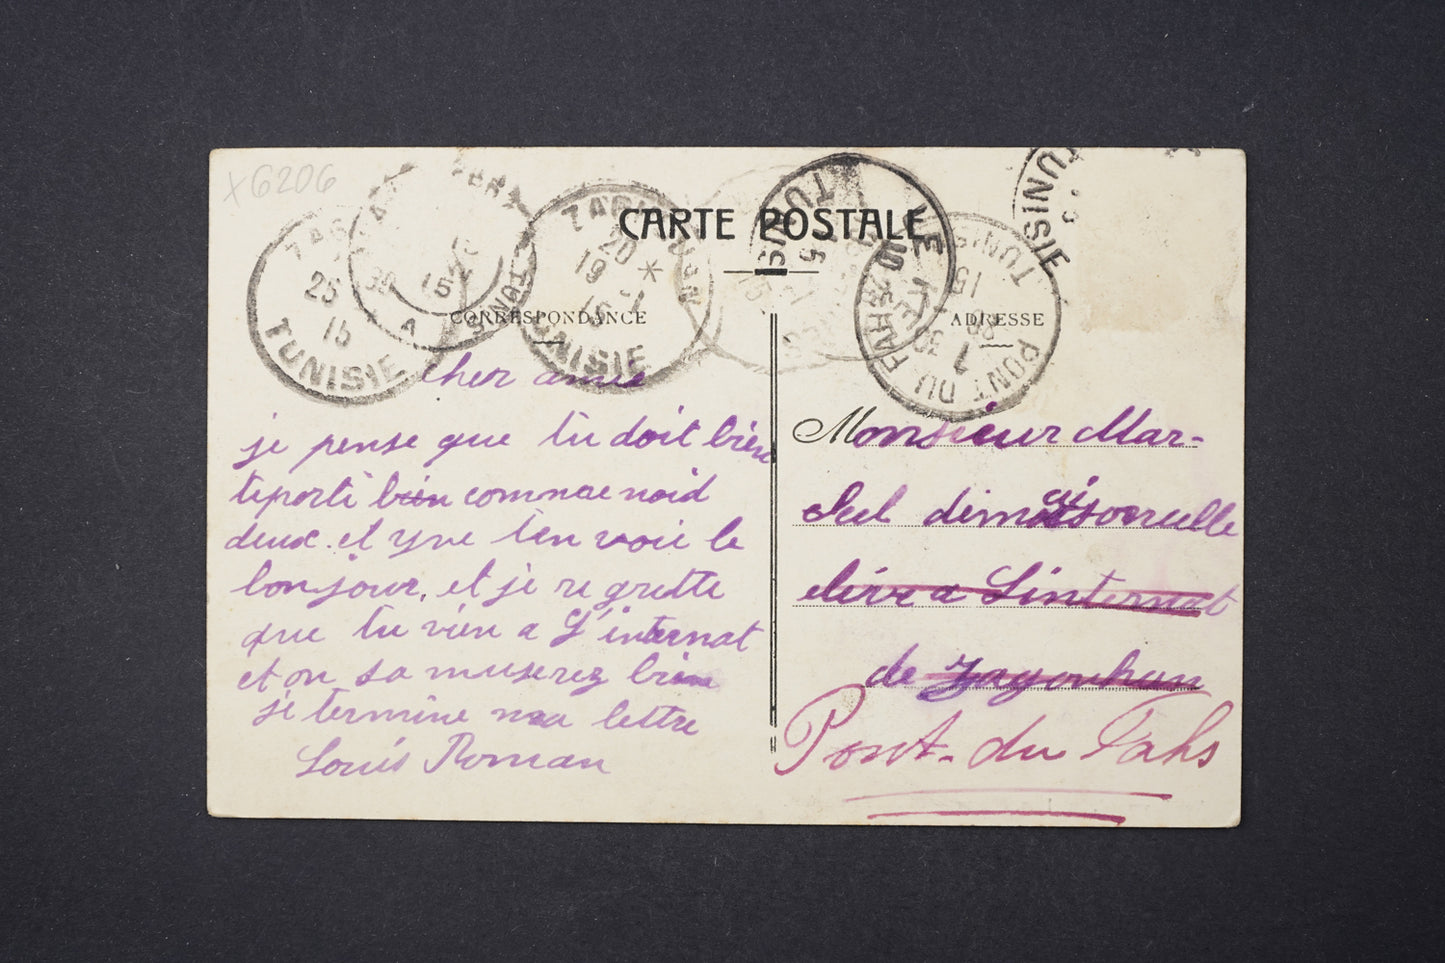 x6206
CARTE POSTALE
CORRESPONDANCE
ADRESSE
ZAG
25
15
TUNISIE
30
15
A
TUNIS
ZAGHOUAN
20
19 *
15
TUNISIE
TUNIS
15
TUNISIE
PONT DU FAHS
TUNISIE
15
7 30
cher amie
je pense que tu doit bièn
teporté bièn comme noid
deux. et yve ten voie le
bonjour, et je re grette
que tu vién a L'internat
et on sa muserez bien
je termine ma lettre
Louis Roman
Monsieur Mar-
sel dimaisonuelle
eléve a Linternat
de Zagouhan
Pont-du Fahs